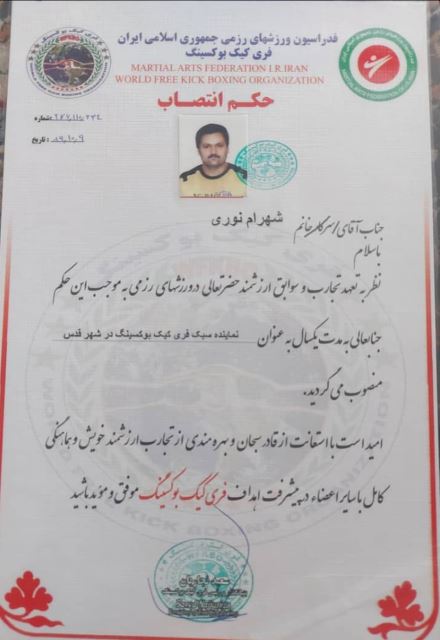 فدراسیون ورزشهای رزمی جمهوری اسلامی ایران
فری کیک بوکسینگ
MARTIAL ARTS FEDERATION I.R.IRAN
WORLD FREE KICK BOXING ORGANIZATION
حکم انتصاب
شماره:
تاریخ: ۸۹،۱۰،۹
جناب آقای/سرکار خانم شهرام نوری
باسلام
نظر به تعهد تجارب و سوابق ارزشمند حضرتعالی در ورزشهای رزمی به موجب این حکم
جنابعالی به مدت یکسال به عنوان نماینده سبک فری کیک بوکسینگ در شهر قدس
منصوب می گردید.
امید است با استعانت از قادر سبحان و بهره مندی از تجارب ارزشمند خویش و هماهنگی
کامل با سایر اعضاء در پیشرفت اهداف فری کیک بوکسینگ موفق و مؤید باشید